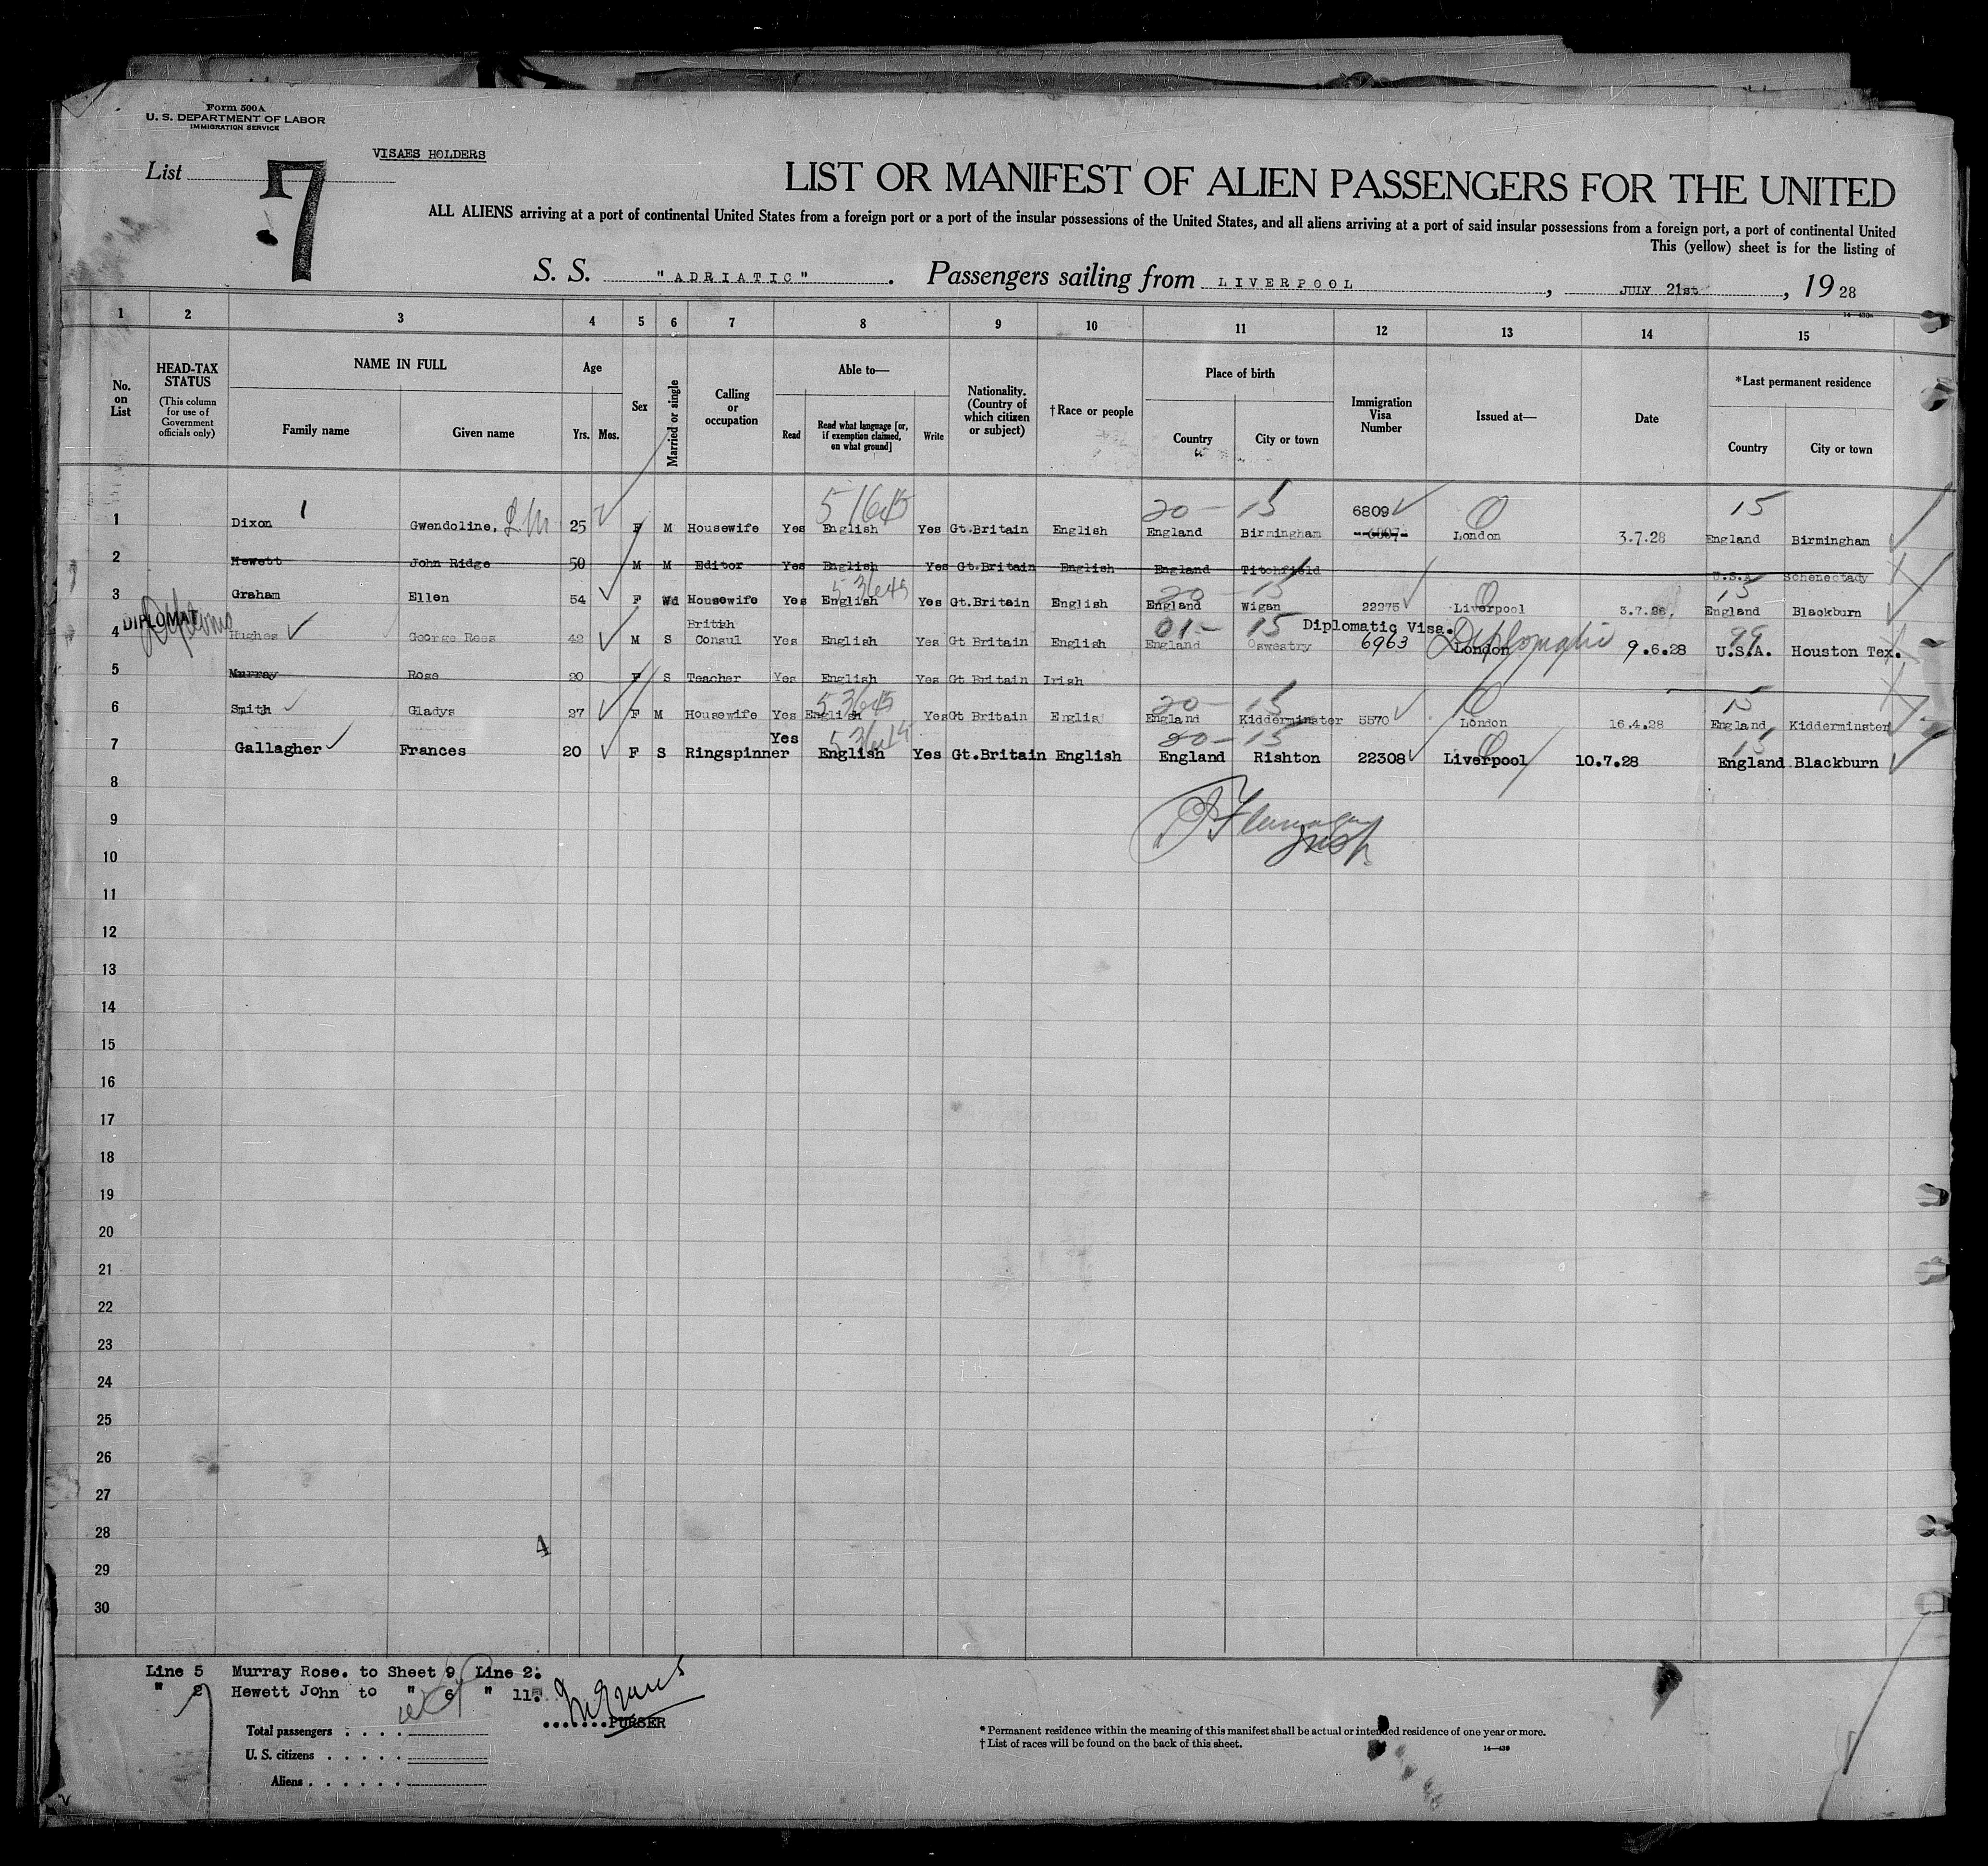 Form 500A
U. S. DEPARTMENT OF LABOR
IMMIGRATION SERVICE
VISAES HOLDERS
List 7
LIST OR MANIFEST OF ALIEN PASSENGERS FOR THE UNITED
ALL ALIENS arriving at a port of continental United States from a foreign port or a port of the insular possessions of the United States, and all aliens arriving at a port of said insular possessions from a foreign port, a port of continental United
This (yellow) sheet is for the listing of
S. S. "ADRIATIC". Passengers sailing from LIVERPOOL, JULY 21st, 1928
14-430a
1 2 3 4 5 6 7 8 9 10 11 12 13 14 15
No. on List
HEAD-TAX STATUS (This column for use of Government officials only)
NAME IN FULL
Family name Given name
Age
Yrs. Mos.
Sex
Married or single
Calling or occupation
Able to—
Read Read what language [or, if exemption claimed, on what ground] Write
Nationality. (Country of which citizen or subject)
†Race or people
Place of birth
Country City or town
Immigration Visa Number
Issued at—
Date
*Last permanent residence
Country City or town
51645 20 - 15 6809 15
1 Dixon 1 Gwendoline, L M 25 F M Housewife Yes English Yes Gt.Britain English England Birmingham London 3.7.28 England Birmingham
2 Hewett John Ridge 50 M M Editor Yes English Yes Gt.Britain English England Titchfield U.S.A Schenectady
53645 20 - 15 15
3 Graham Ellen 54 F Wd Housewife Yes English Yes Gt.Britain English England Wigan 22275 Liverpool 3.7.28, England Blackburn
DIPLOMAT British 01 - 15 Diplomatic Visa. Diplomatic 99
4 Hughes George Rees 42 M S Consul Yes English Yes Gt Britain English England Oswestry 6963 London 9.6.28 U.S.A. Houston Tex.
5 Murray Rose 20 F S Teacher Yes English Yes Gt Britain Irish
53645 20 - 15 15
6 Smith Gladys 27 F M Housewife Yes English Yes Gt Britain Englis England Kidderminster 5570 London 16.4.28 England Kidderminster
20 - 15 15
7 Gallagher Frances 20 F S Ringspinner Yes English Yes Gt.Britain English England Rishton 22308 Liverpool 10.7.28 England Blackburn
8
9
10
11
12
13
14
15
16
17
18
19
20
21
22
23
24
25
26
27
28
4
29
30
Line 5 Murray Rose. to Sheet 9 Line 2.
" 2 Hewett John to " 6 " 11.
PURSER
Total passengers . . . .
U. S. citizens . . . . .
Aliens . . . . . .
* Permanent residence within the meaning of this manifest shall be actual or intended residence of one year or more.
† List of races will be found on the back of this sheet.
14-430